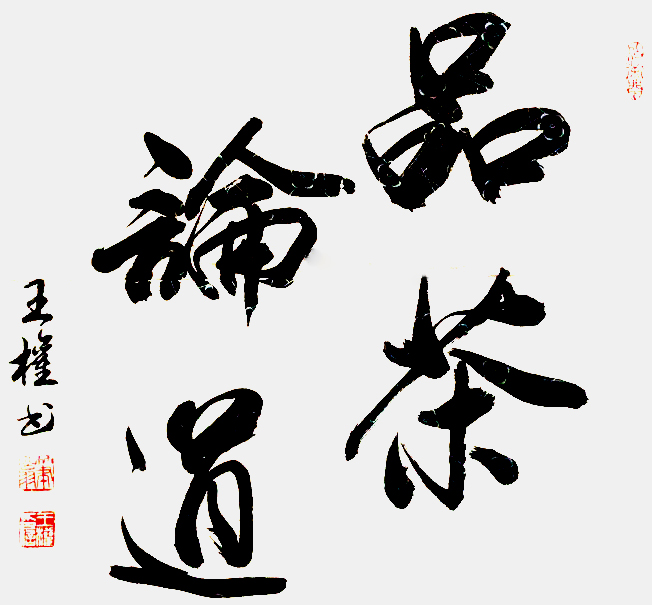 品茶
論道
王權书